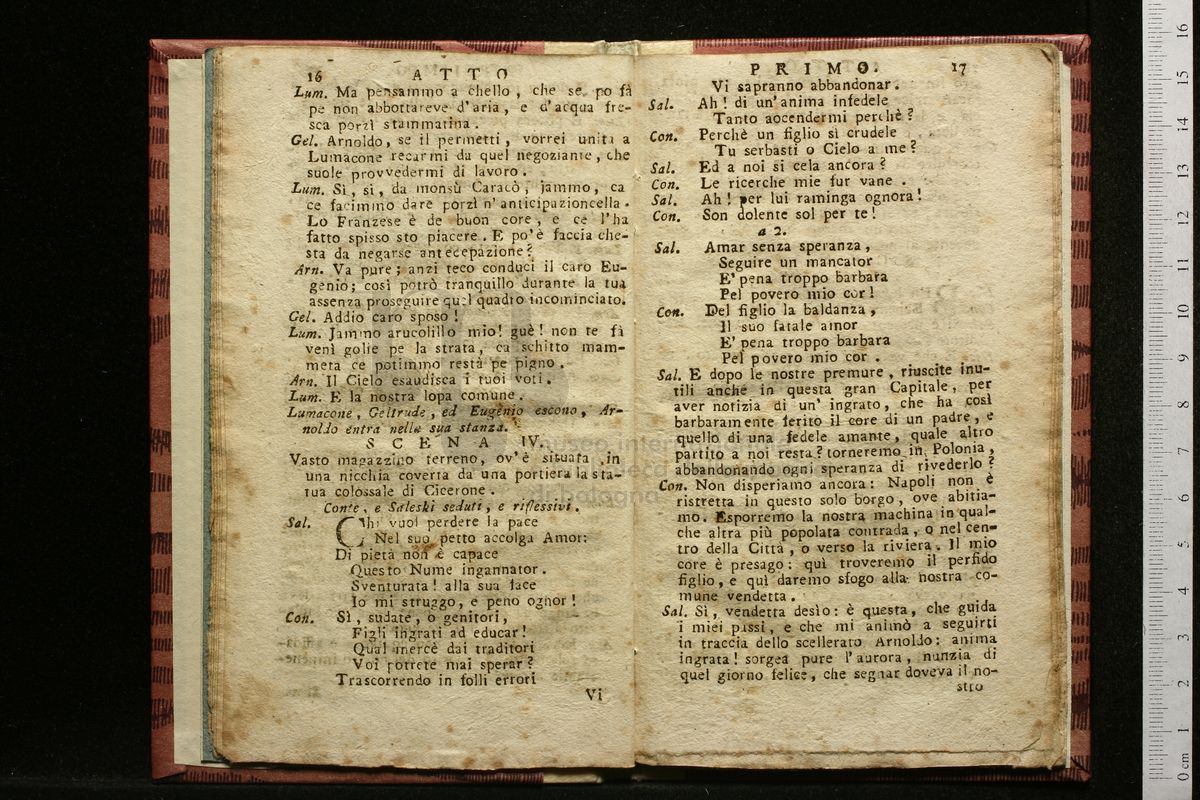 16 ATTO
Lum. Ma pensammo a chello, che se po fà
pe non abbottareve d'aria, e d'acqua fre-
sca porzì stammatina.
Gel. Arnoldo, se il permetti, vorrei unita a
Lumacone recarmi da quel negoziante, che
suole provvedermi di lavoro.
Lum. Sì, sì, da monsù Caracò, jammo, ca
ce facimmo dare porzì n'anticipazioncella.
Lo Franzese è de buon core, e ce l'ha
fatto spisso sto piacere. E po'è faccia che-
sta da negarse antecepazione?
Arn. Va pure; anzi teco conduci il caro Eu-
genio; così potrò tranquillo durante la tua
assenza proseguire quel quadro incominciato.
Gel. Addio caro sposo!
Lum. Jammo arucolillo mio! guè! non te fà
venì golie pe la strata, ca schitto mam-
meta ce potimmo restà pe pigno.
Arn. Il Cielo esaudisca i tuoi voti.
Lum. E la nostra lopa comune.
Lumacone, Geltrude, ed Eugenio escono, Ar-
noldo entra nella sua stanza.
SCENA IV.
Vasto magazzino terreno, ov'è situata in
una nicchia coverta da una portiera la sta-
tua colossale di Cicerone.
Conte, e Saleski seduti, e riflessivi.
Sal. Chi vuol perdere la pace
Nel suo petto accolga Amor:
Di pietà non è capace
Questo Nume ingannator.
Sventurata! alla sua face
Io mi struggo, e peno ognor!
Con. Sì, sudate, o genitori,
Figli ingrati ad educar!
Qual mercè dai traditori
Voi potrete mai sperar?
Trascorrendo in folli errori
Vi
PRIMO. 17
Vi sapranno abbandonar.
Sal. Ah! di un'anima infedele
Tanto accendermi perchè?
Con. Perchè un figlio sì crudele
Tu serbasti o Cielo a me?
Sal. Ed a noi si cela ancora?
Con. Le ricerche mie fur vane.
Sal. Ah! per lui raminga ognora!
Con. Son dolente sol per te!
a 2.
Sal. Amar senza speranza,
Seguire un mancator
E' pena troppo barbara
Pel povero mio cor!
Con. Del figlio la baldanza,
Il suo fatale amor
E' pena troppo barbara
Pel povero mio cor.
Sal. E dopo le nostre premure, riuscite inu-
tili anche in questa gran Capitale, per
aver notizia di un' ingrato, che ha così
barbaramente ferito il core di un padre, e
quello di una fedele amante, quale altro
partito a noi resta? torneremo in Polonia,
abbandonando ogni speranza di rivederlo?
Con. Non disperiamo ancora: Napoli non è
ristretta in questo solo borgo, ove abitia-
mo. Esporremo la nostra machina in qual-
che altra più popolata contrada, o nel cen-
tro della Città, o verso la riviera. Il mio
core è presago: quì troveremo il perfido
figlio, e quì daremo sfogo alla nostra co-
mune vendetta.
Sal. Sì, vendetta desìo: è questa, che guida
i miei passi, e che mi animò a seguirti
in traccia dello scellerato Arnoldo: anima
ingrata! sorgea pure l'aurora, nunzia di
quel giorno felice, che segnar doveva il no-
stro